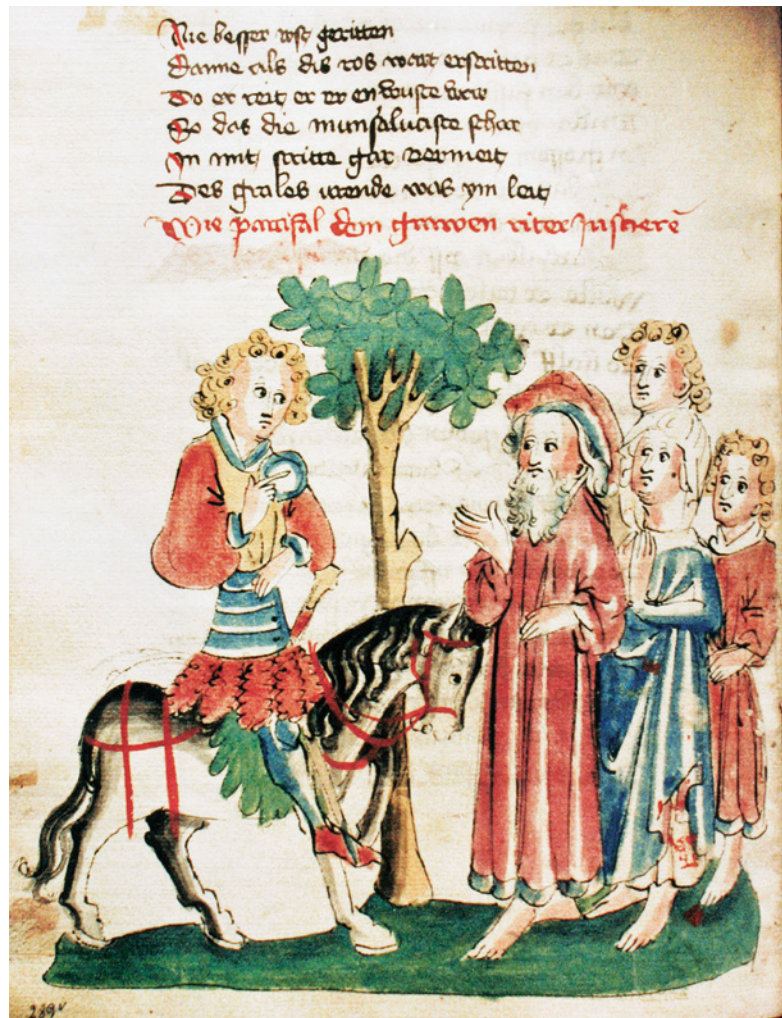 Nie besser rost geritten
Danne als dis ros wart erstritten
Do er reit er er enwuste war
So das die munsaluatste schar
In mit stritte gar vermeit
Des grales vrende was ym leit
Wie parcifal dem growen riter
289v